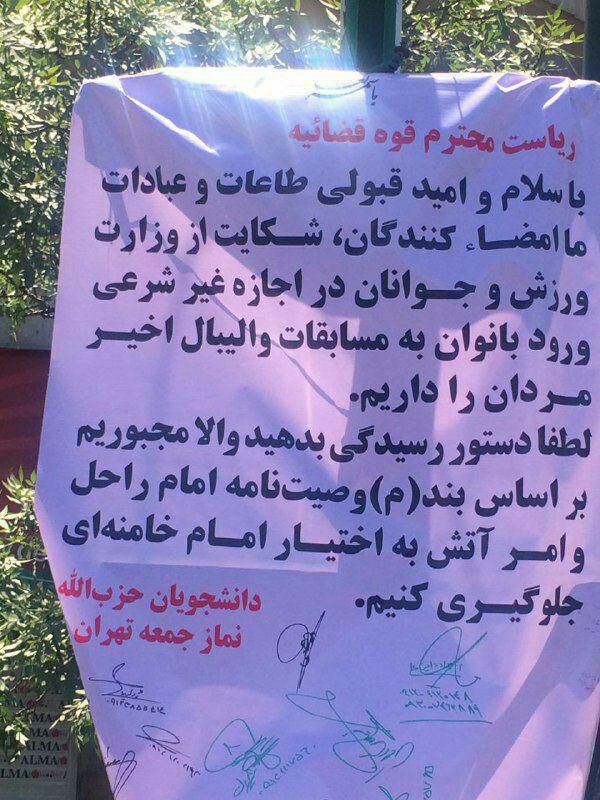 ریاست محترم قوه قضائیه
باسلام و امید قبولی طاعات و عبادات
ما امضاء کنندگان، شکایت از وزارت
ورزش و جوانان در اجازه غیر شرعی
ورود بانوان به مسابقات والیبال اخیر
مردان را داریم.
لطفا دستور رسیدگی بدهید والا مجبوریم
بر اساس بند(م)وصیت‌نامه امام راحل
و امر آتش به اختیار امام خامنه‌ای
جلوگیری کنیم.
دانشجویان حزب‌الله
نماز جمعه تهران
ALMA
ALMA
ALMA